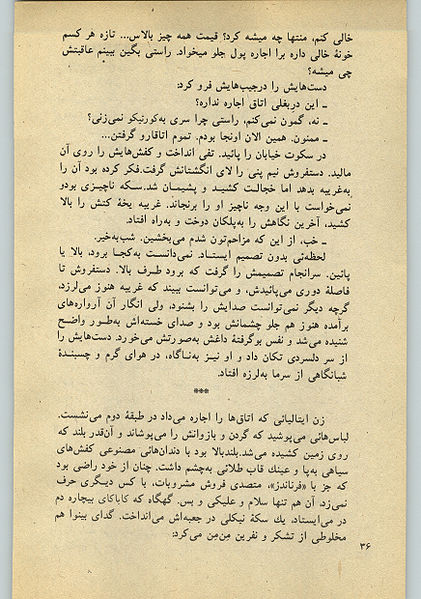 خالی کنم، منتها چه میشه کرد؟ قیمت همه چیز بالاس... تازه هر کسم
خونهٔ خالی داره برا اجاره پول جلو میخواد. راستی بگین ببینم عاقبتش
چی میشه؟
دست‌هایش را درجیب‌هایش فرو کرد:
ـ این دربغلی اتاق اجاره نداره؟
ـ نه، گمون نمی‌کنم، راستی چرا سری به‌کورنیکو نمی‌زنی؟
ـ ممنون. همین الان اونجا بودم. تموم اتاقارو گرفتن...
در سکوت خیابان را پائید. تفی انداخت و کفش‌هایش را روی آن
مالید. دستفروش نیم پنی را لای انگشتانش گرفت. فکر کرده بود آن را
به‌غریبه بدهد اما خجالت کشید و پشیمان شد. سکه ناچیزی بود و
نمی‌خواست با این وجه ناچیز او را برنجاند. غریبه یخهٔ کتش را بالا
کشید، آخرین نگاهش را به‌پلکان دوخت و به‌راه افتاد.
ـ خب، از این که مزاحم‌تون شدم می‌بخشین. شب‌به‌خیر.
لحظه‌ئی بدون تصمیم ایستاد. نمی‌دانست به‌کجا برود، بالا یا
پائین. سرانجام تصمیمش را گرفت که برود طرف بالا. دستفروش تا
فاصلهٔ دوری می‌پائیدش، و می‌توانست ببیند که غریبه هنوز می‌لرزد،
گرچه دیگر نمی‌توانست صدایش را بشنود، ولی انگار آن آرواره‌های
برآمده هنوز هم جلو چشمانش بود و صدای خسته‌اش به‌طور واضح
شنیده می‌شد و نفس بوگرفتهٔ داغش به‌صورتش می‌خورد. دست‌هایش را
از سر دلسردی تکان داد و او نیز به‌ناگاه، در هوای گرم و چسبندهٔ
شبانگاهی از سرما به‌لرزه افتاد.
***
زن ایتالیائی که اتاق‌ها را اجاره می‌داد در طبقهٔ دوم می‌نشست.
لباس‌هائی می‌پوشید که گردن و بازوانش را می‌پوشاند و آن‌قدر بلند که
روی زمین کشیده می‌شد. بلندبالا بود با دندان‌هائی مصنوعی کفش‌های
سیاهی به‌پا و عینك قاب طلائی به‌چشم داشت. چنان از خود راضی بود
که جز با «فرناندز»، متصدی فروش مشروبات، با کس دیگری حرف
نمی‌زد. آن هم تنها سلام و علیکی و بس. گهگاه که کاباکای بیچاره دم
در می‌ایستاد، یك سکهٔ نیکلی در جعبه‌اش می‌انداخت. گدای بینوا هم
مخلوطی از تشکر و نفرین مِن‌مِن می‌کرد:
۳۶